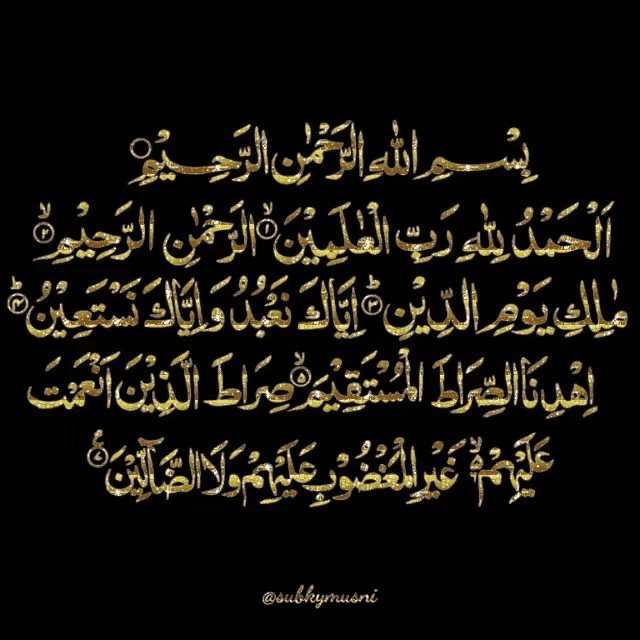 بِسْمِ اللهِ الرَّحْمٰنِ الرَّحِيْمِ
اَلْحَمْدُ لِلهِ رَبِّ الْعٰلَمِيْنَ ۙ﴿١﴾ الرَّحْمٰنِ الرَّحِيْمِ ۙ﴿٢﴾
مٰلِكِ يَوْمِ الدِّيْنِ ؕ﴿٣﴾ اِيَّاكَ نَعْبُدُ وَاِيَّاكَ نَسْتَعِيْنُ ؕ﴿٤﴾
اِهْدِنَا الصِّرَاطَ الْمُسْتَقِيْمَ ۙ﴿٥﴾ صِرَاطَ الَّذِيْنَ اَنْعَمْتَ
عَلَيْهِمْ ۙ۬ غَيْرِ الْمَغْضُوْبِ عَلَيْهِمْ وَلَا الضَّآلِّيْنَ
@subkymusni